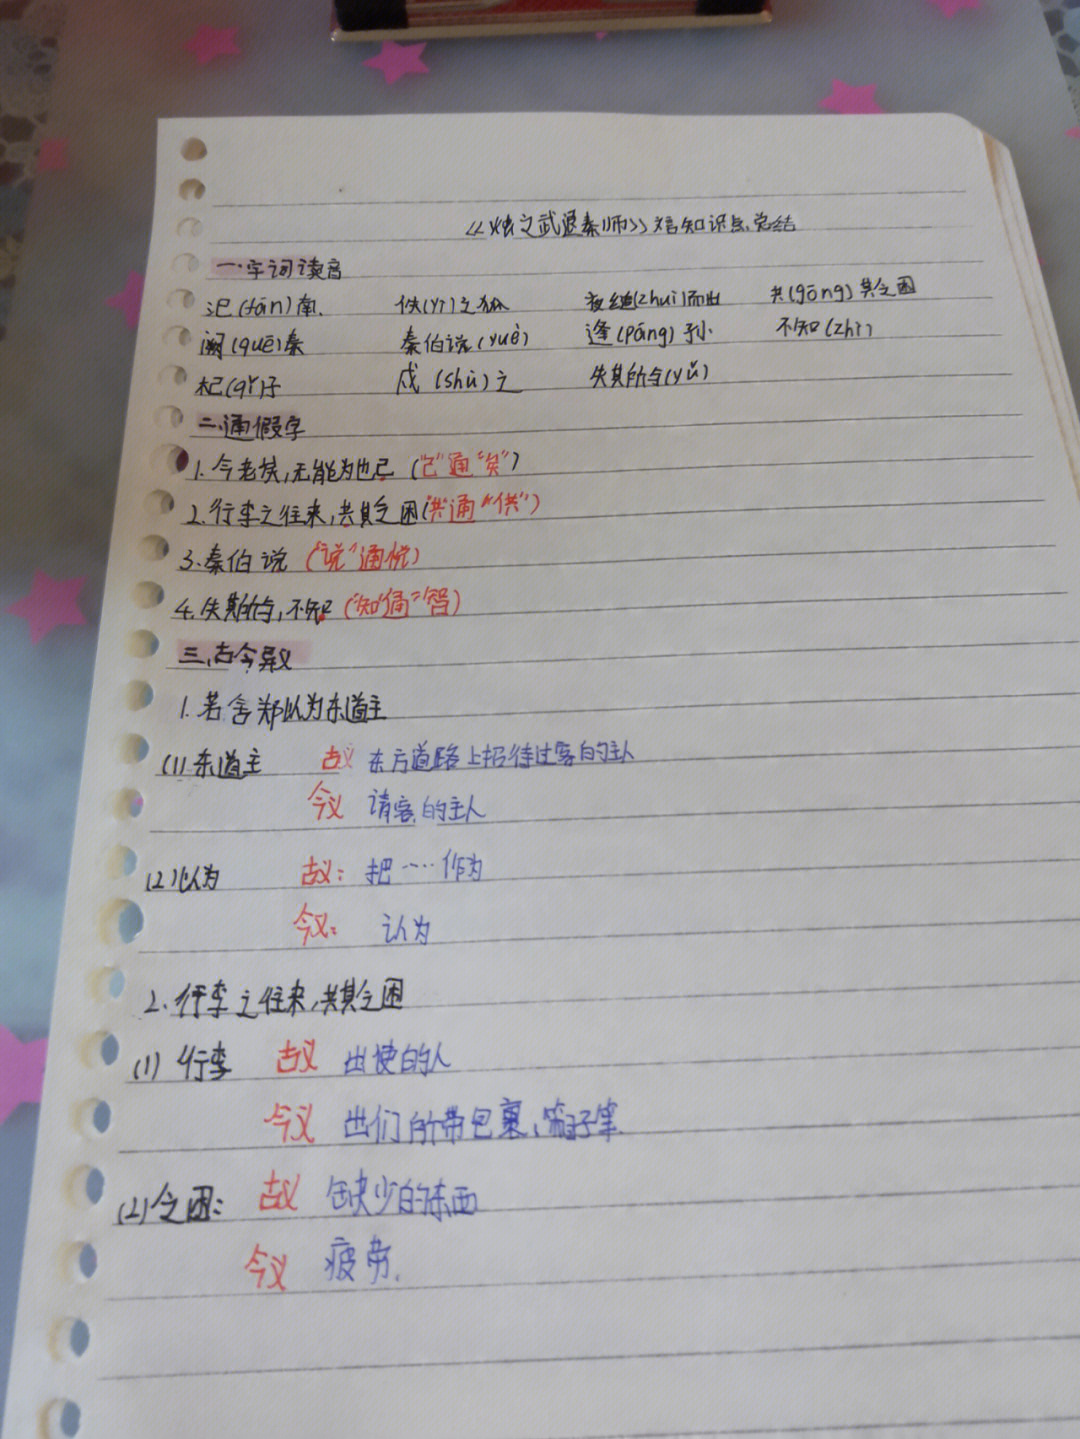 《烛之武退秦师》文言知识点总结
一.字词读音
汜(fán)南. 佚(yì)之狐 夜缒(zhuì)而出 共(gōng)其乏困
阙(quē)秦 秦伯说(yuè) 逢(páng)孙 不知(zhì)
杞(qǐ)子 戍(shù)之 失其所与(yǔ)
二.通假字
1.今老矣,无能为也已("已"通"矣")
2.行李之往来,共其乏困("共"通"供")
3.秦伯说("说"通悦)
4.失其所与,不知("知"通"智)
三.古今异义
1.若舍郑以为东道主
(1)东道主 古义 东方道路上招待过客的主人
今义 请客的主人
(2)以为 古义: 把……作为
今义: 认为
2.行李之往来,共其乏困
(1)行李 古义 出使的人
今义 出们所带包裹、箱子等
(2)乏困: 古义 缺少的东西
今义 疲劳.